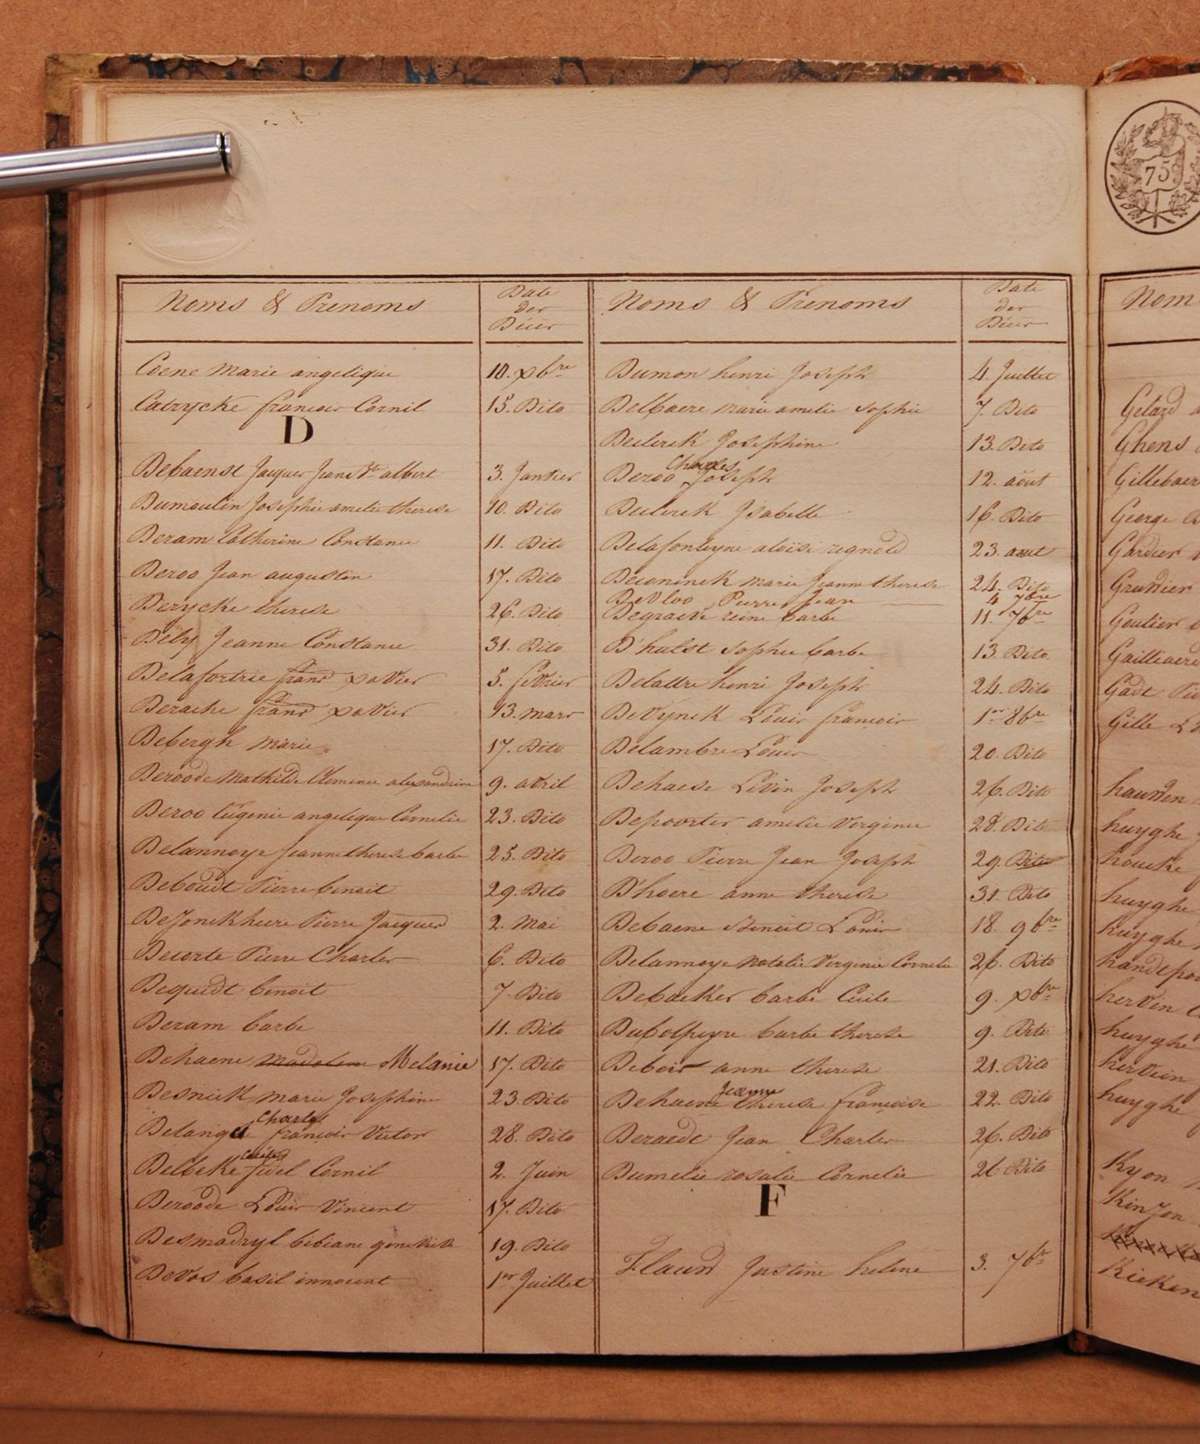 Noms & Prenoms
Date
des
Décès
Coene marie angelique 10. xbre
Catrycke françois Cornil 15. Dito
D
Debaenst Jacques Jane Bte albert 3. Janvier
Dumoulin Josephe amelie therese 10. Dito
Deram Catherine Constance 11. Dito
Deroo Jean augustin 17. Dito
Derycke therese 26. Dito
Dély Jeanne Constance 31. Dito
Delafortrie franc xavier 5. fevrier
Derache franc xavier 13. mars
Debergh marie 17. Dito
Deroode Mathilde Clemence alexandrine 9. avril
Deroo Eugenie angelique Cornelie 23. Dito
Delannoye Jeanne therese barbe 25. Dito
Deboudt Pierre benoit 29. Dito
DeJonckheere Pierre Jacques 2. Mai
Decorte Pierre Charles 6. Dito
Dequidt benoit 7. Dito
Deram barbe 11. Dito
Dehaene Madeleine Melanie 17. Dito
Desnick marie Josephine 23. Dito
Charles
Delangé françois Victor 28. Dito
Delbeke Cornil 2. Juin
Deroode Louis Vincent 17. Dito
Desmadryl bibiane genevieve 19. Dito
DeVos basil innocent 1er Juillet
Noms & Prenoms
Date
des
Décès
Dumon henri Joseph 4. Juillet
Delbaere marie amelie sophie 7. Dito
Declerck Josephine 13. Dito
Charles
Deroo Joseph 12. aout
Declerck Isabelle 16. Dito
Delafonteyne aloïse regnold 23. aout
Deconinck marie Jeanne therese 24. Dito
DeVloo Pierre Jean 4 7bre
Degraeve reine barbe 11. 7bre
D'hulst sophie barbe 13. Dito
Delattre henri Joseph 24. Dito
DeVynck Louis françois 1er 8bre
Delambre Louis 20. Dito
Dehaese Livin Joseph 26. Dito
Depoorter amelie Verginie 28. Dito
Deroo Pierre Jean Joseph 29. Dito
D'hoere anne therese 31. Dito
Debaene Benoit Louis 18. 9bre
Delannoye Natalie Verginie Cornelie 26. Dito
Debacker barbe Cecile 9. xbre
Dubolpeyre barbe therese 9. Dito
Debeir anne therese 21. Dito
Jeanne
Dehaene therese françoise 22. Dito
Deraedt Jean Charles 26. Dito
Dumelie rosalie Cornelie 26 Dito
F
Flaund Justine heline 3. 7bre
75
Nom
Gelard
Ghens
Gillebaer
George
Gardier
Grundier
Goutier
Gailliaerd
Gadt
Gille
hauwen
huyghe
houcke
huyghe
huyghe
handtpoo
hervein
huyghe
hervein
huyghe
Kyon
Kinjon
Kieken